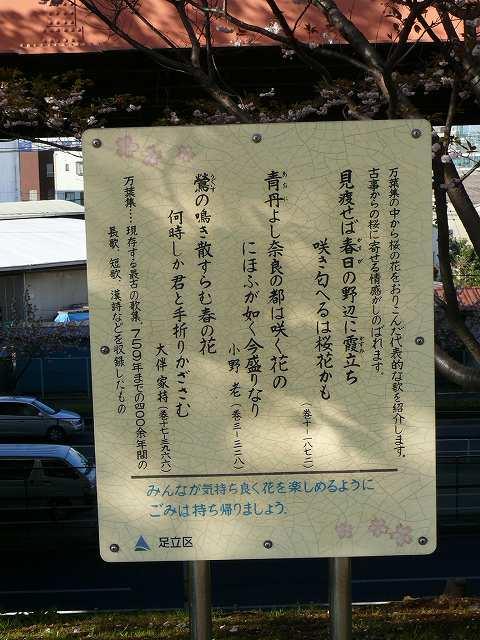 万葉集の中から桜の花をおりこんだ代表的な歌を紹介します。
古事からの桜に寄せる情感がしのばれます。
見渡せば春日の野辺に霞立ち
咲き匂へるは桜花かも
(巻十-一八七二)
青丹よし奈良の都は咲く花の
にほふが如く今盛りなり
小野 老(巻三-三二八)
鶯の鳴き散すらむ春の花
何時しか君と手折りかざさむ
大伴 家持(巻十七-三九六六)
万葉集…現存する最古の歌集、759年までの四〇〇余年間の
長歌、短歌、漢詩などを収録したもの
みんなが気持ち良く花を楽しめるように
ごみは持ち帰りましょう。
足立区